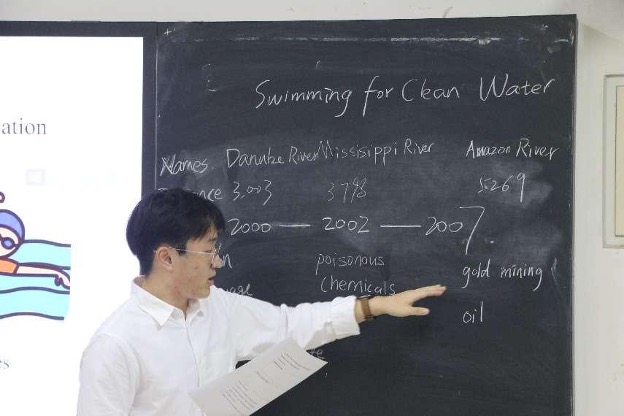 ation
Swimming for Clean Water
Names Danube River Mississippi River Amazon River
nce 3.003 3798 5269
2000 — 2002 — 2007
poisonous gold mining
chemicals
oil